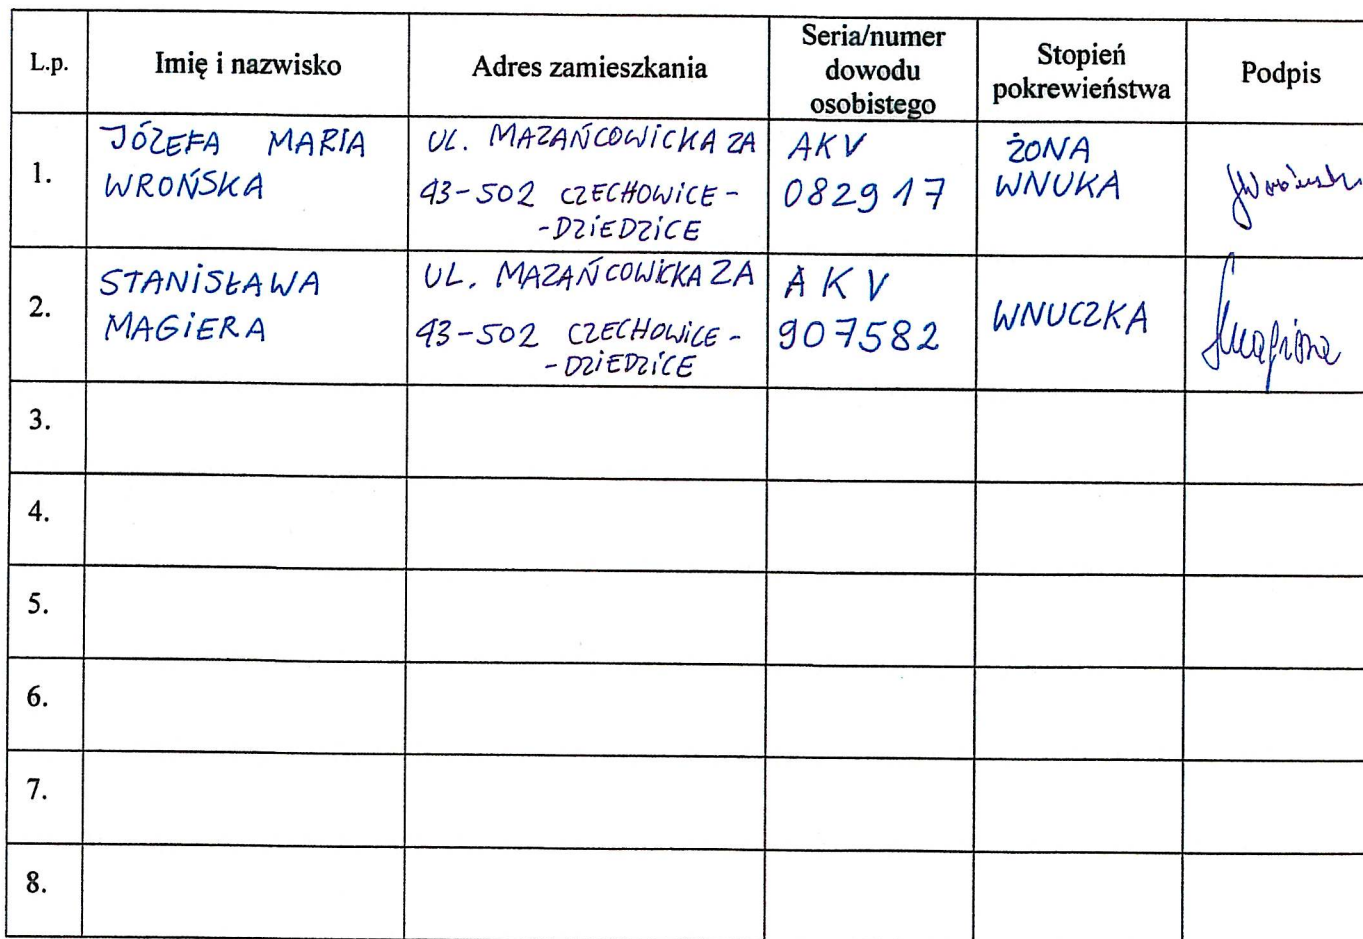 L.p. Imię i nazwisko Adres zamieszkania Seria/numer dowodu osobistego Stopień pokrewieństwa Podpis
1. JÓZEFA MARIA WROŃSKA UL. MAZAŃCOWICKA 2A 43-502 CZECHOWICE- -DZIEDZICE AKV 082917 ŻONA WNUKA
2. STANISŁAWA MAGIERA UL. MAZAŃCOWICKA 2A 43-502 CZECHOWICE- -DZIEDZICE AKV 907582 WNUCZKA
3.
4.
5.
6.
7.
8.